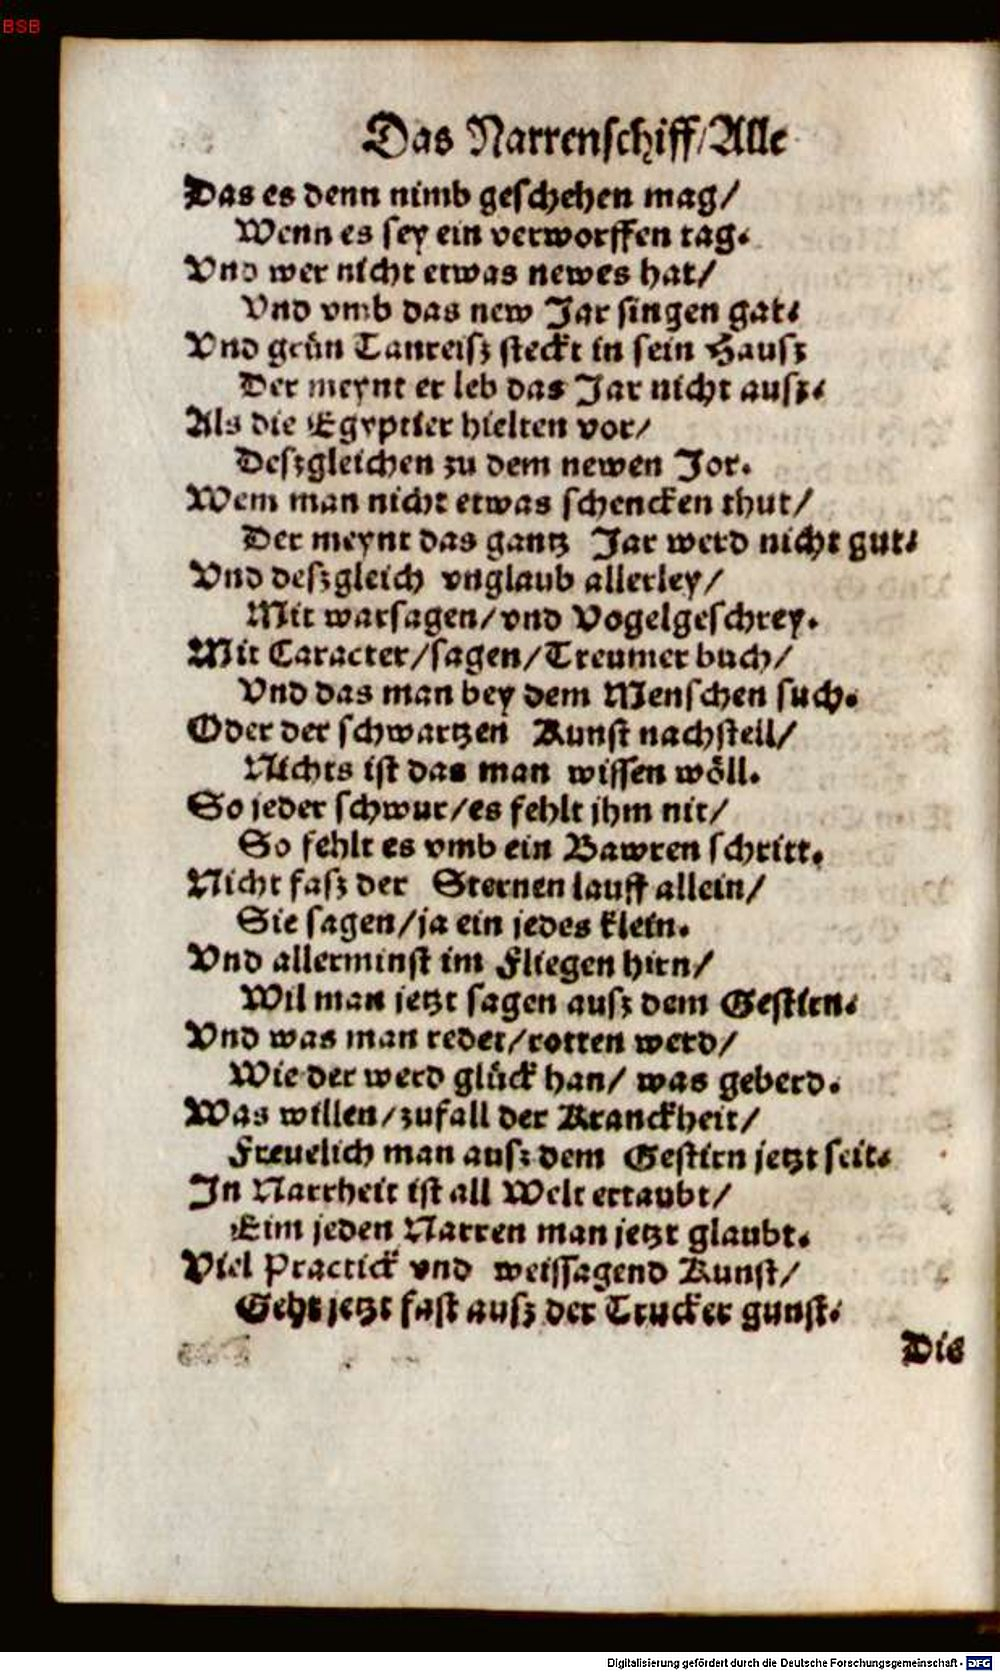 BSB
Das Narrenschiff/Alle
Das es denn nimb geschehen mag/
Wenn es sey ein verworffen tag.
Vnd wer nicht etwas newes hat/
Vnd vmb das new Jar singen gat.
Vnd grün Tanreisz steckt in sein Hausz
Der meynt er leb das Jar nicht ausz.
Als die Egyptier hielten vor/
Deszgleichen zu dem newen Jor.
Wem man nicht etwas schencken thut/
Der meynt das gantz Jar werd nicht gut.
Vnd deszgleich vnglaub allerley/
Mit warsagen/vnd Vogelgeschrey.
Mit Caracter/sagen/Treumer buch/
Vnd das man bey dem Menschen such.
Oder der schwartzen Kunst nachstell/
Nichts ist das man wissen wöll.
So jeder schwur/es fehlt jhm nit/
So fehlt es vmb ein Bawren schritt.
Nicht fasz der Sternen lauff allein/
Sie sagen/ja ein jedes klein.
Vnd allerminst im Fliegen hirn/
Wil man jetzt sagen ausz dem Gestirn.
Vnd was man reder/rotten werd/
Wie der werd glück han/ was geberd.
Was willen/zufall der Kranckheit/
Freuelich man ausz dem Gestirn jetzt seit.
In Narrheit ist all Welt ertaubt/
Eim jeden Narren man jetzt glaubt.
Viel Practick vnd weissagend Kunst/
Geht jetzt fast ausz der Trucker gunst.
Die
Digitalisierung gefördert durch die Deutsche Forschungsgemeinschaft - DFG